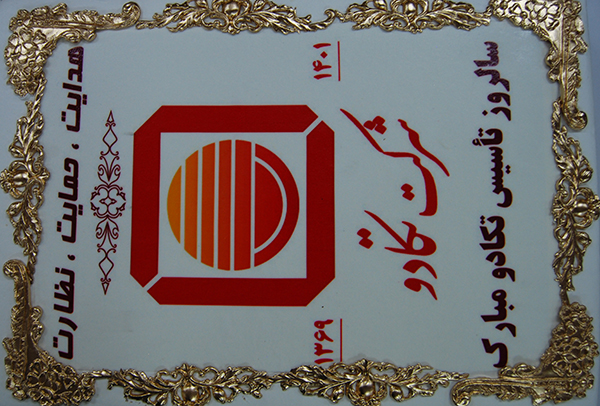 سالروز تأسیس تکادو مبارک
شرکت تکادو
۱۳۶۹
۱۴۰۱
هدایت ، حمایت ، نظارت